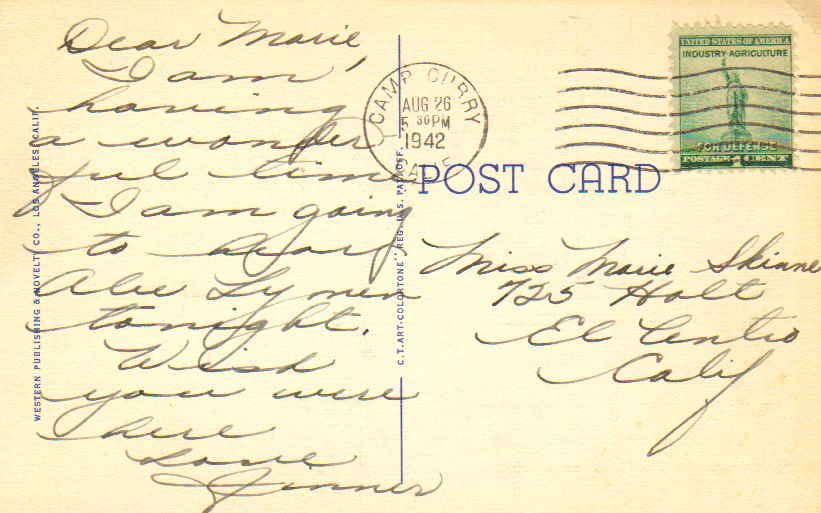 Dear Marie,
I am
having
a wonder
ful time
I am going
to hear
Abe Lymen
tonight.
Wish
you were
here
Love
CAMP CURRY
AUG 26
5 30 PM
1942
CALIF.
UNITED STATES OF AMERICA
INDUSTRY AGRICULTURE
FOR DEFENSE
POSTAGE 1 CENT
POST CARD
Miss Marie Skinne
725 Holt
El Centro
Calif
WESTERN PUBLISHING & NOVELTY CO., LOS ANGELES, CALIF.
C.T. ART-COLORTONE" REG. U.S. PAT. OFF.